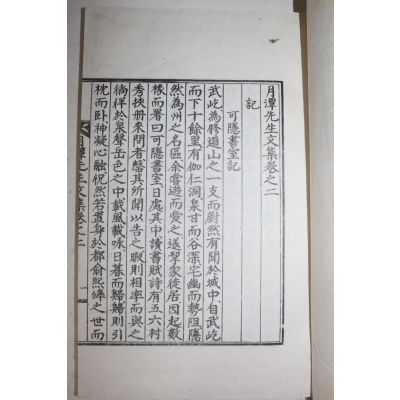 月潭先生文集卷之二
記
可隱書室記
武屹為修道山之一支而蔚然有聞於域中自武屹
而下十餘里有伽仁洞泉甘而谷深宅幽而勢阻隱
然為州之名區余嘗遊而愛之遂挈家徙居因起數
椽而署曰可隱書室日處其中讀書賦詩有五六村
秀挾册來問者罄其所聞以告之暇則相率而與之
徜徉於泉聲岳色之中載風載咏日暮而歸歸則引
枕而卧神凝心融怳然若置身於都俞熙皥之世而
月潭先生文集卷之二
一